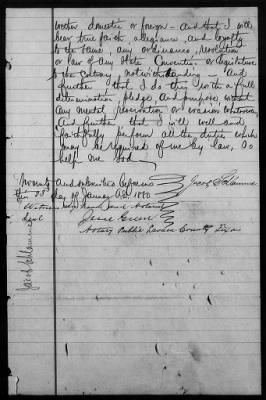 whether domestic or foreign - And that I will
bear true faith, allegiance, and loyalty
to the same, any ordinance, resolution
or law of any State Convention or Legislature
to the contrary notwithstanding - And
further that I do this with a full
determination, pledge, and purpose, without
any mental reservation or evasion whatsoever,
And further that I will well and
faithfully perform all the duties which
may be required of me by law, So
help me God
Jacob Schlamme
Sworn to and subscribed before me
this day of January A.D. 1880
Witness my hand and Notarial
Seal
Jesse Green
Notary Public County Texas
Jacob Schlamme